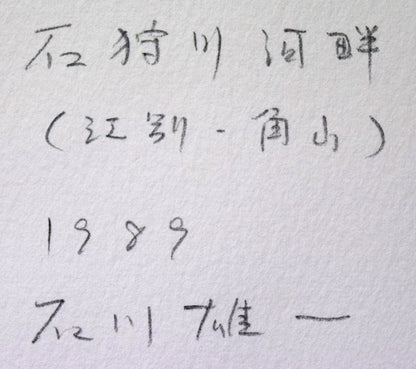 石狩川河畔
(江別-角山)
1989
石川雄一